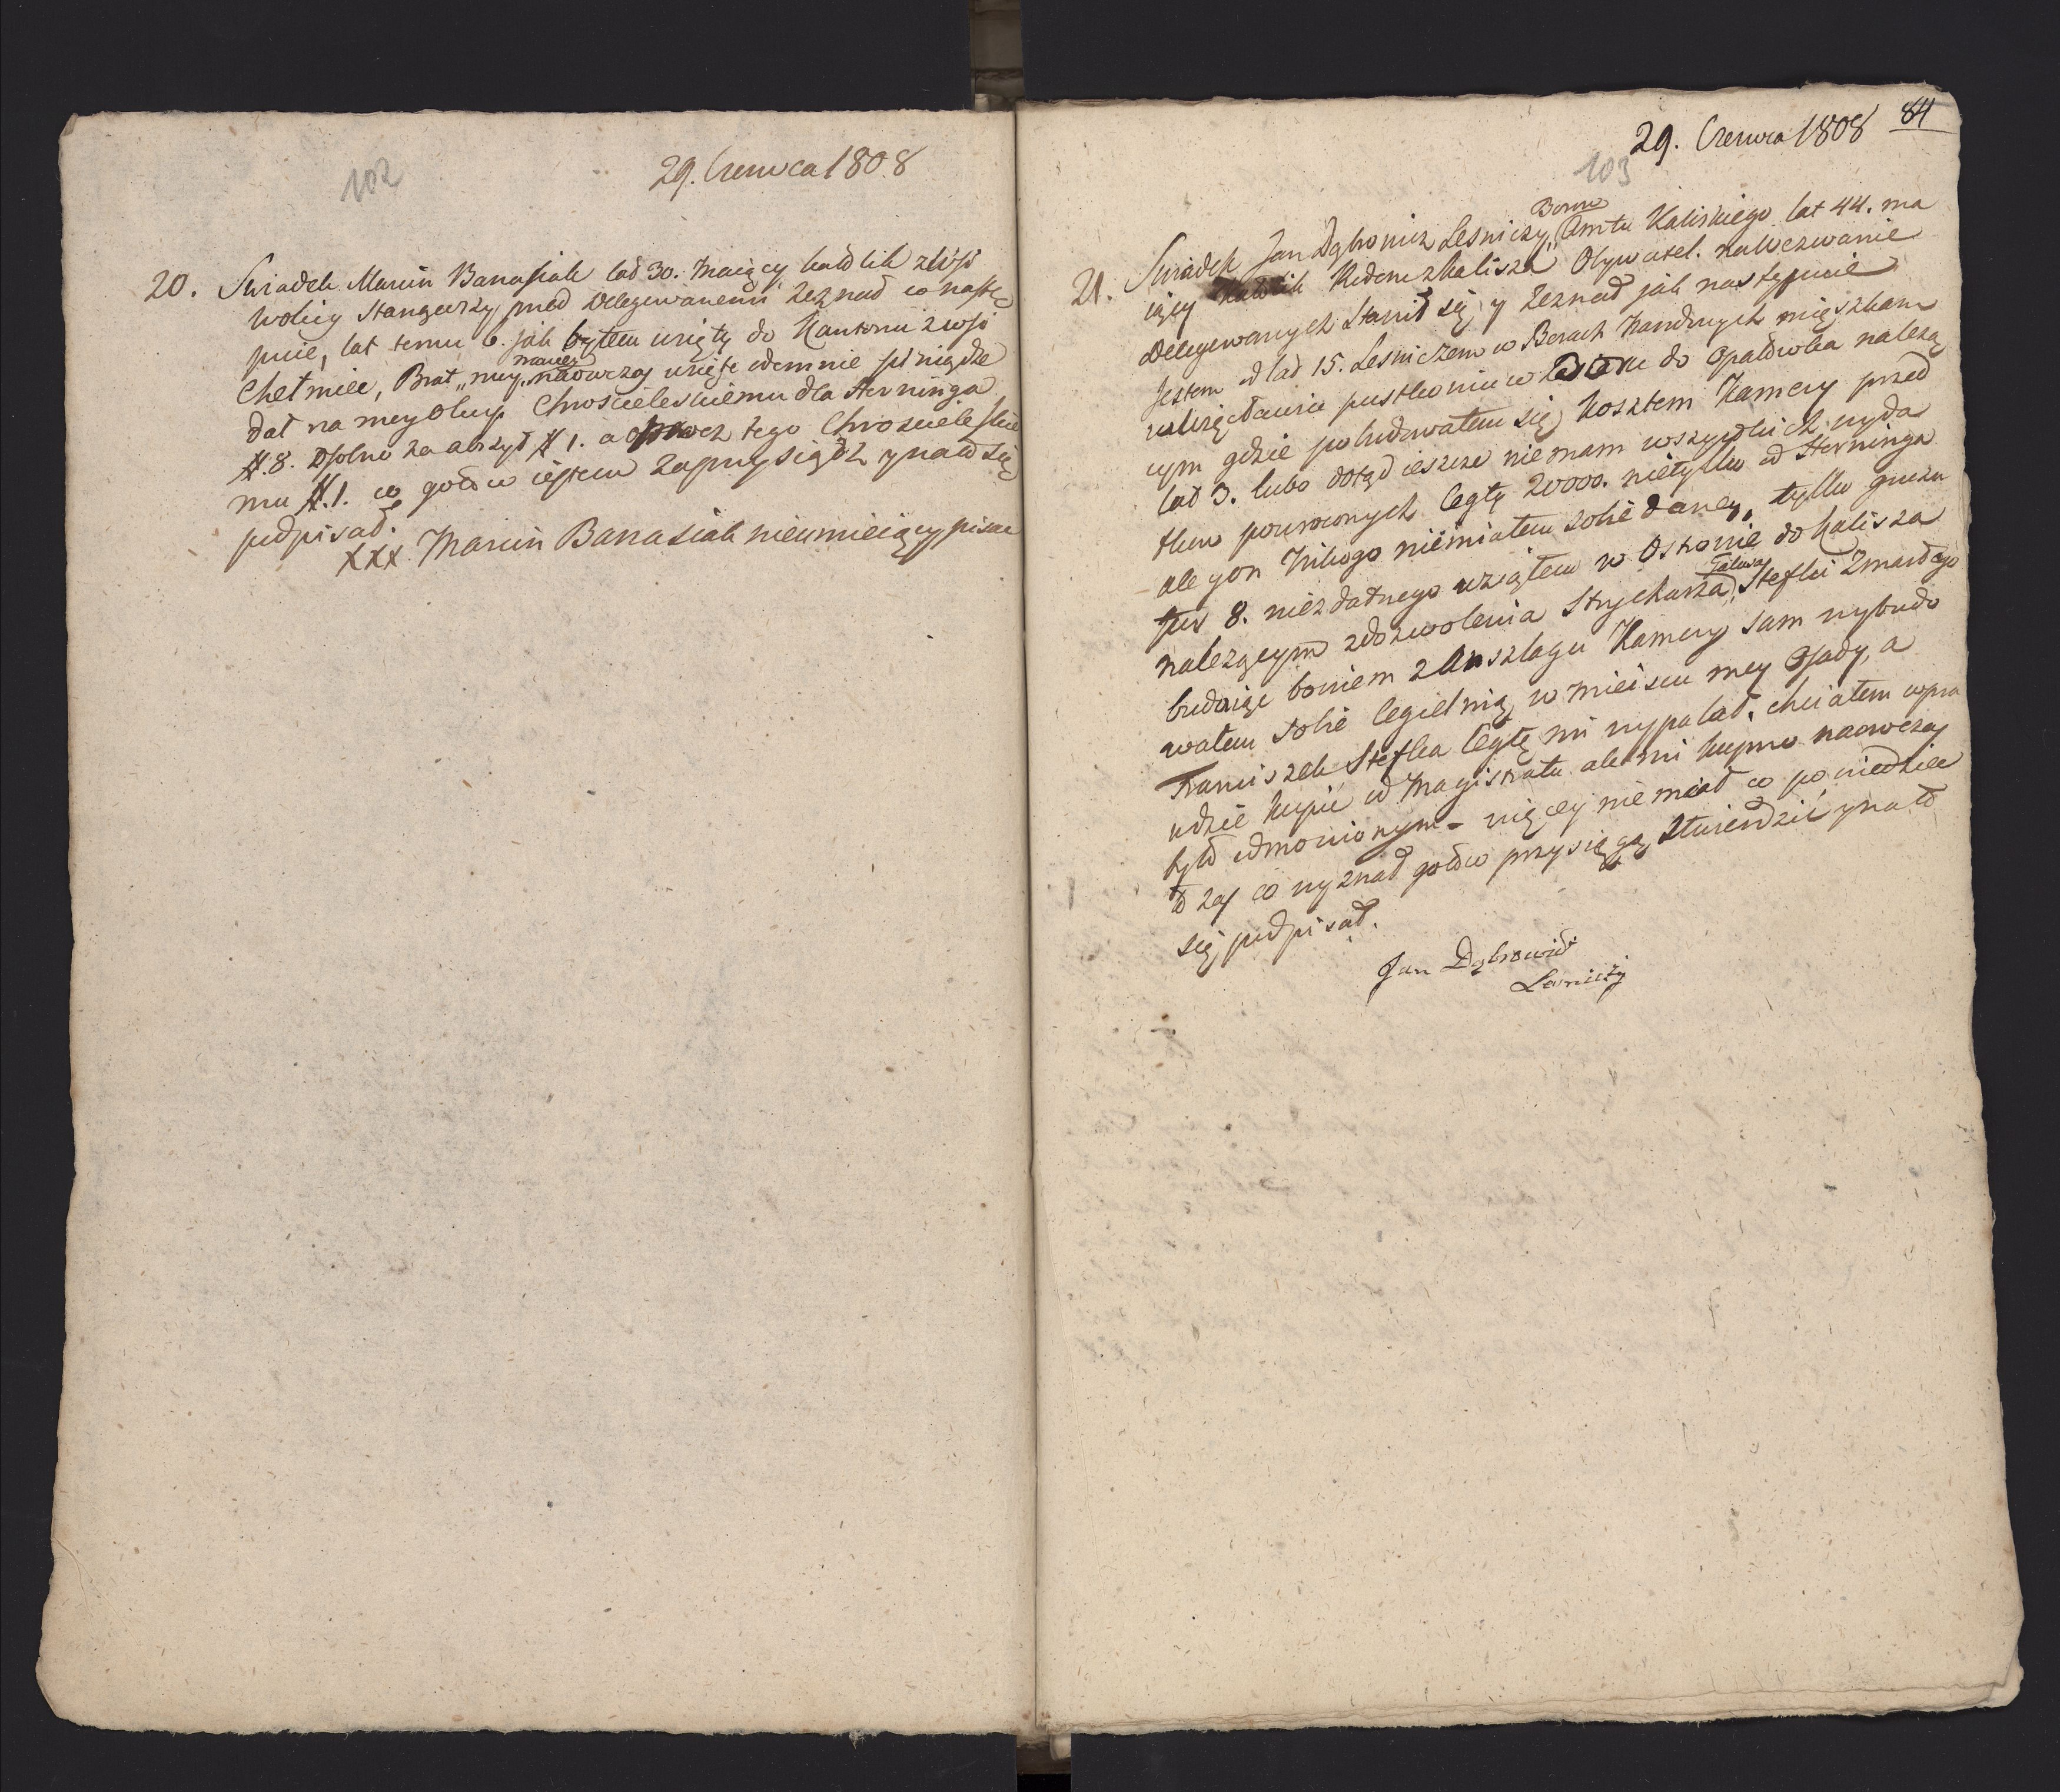 102
29. Czerwca 1808
20. Swiadek Marcin Banasiak lad 30. maiący kadlik z Wsi
Wolicy Stanąwszy przed Delegowanemi Zeznad co nastę
puie, lat temu 6. jak byłem wzięty do Kantonu z wsi
Chełmice, Brat mey naowczas wzięte odemnie piniądze
dał na mey Okup Chroscielewskiemu dla Herninga
#. 8. osobno za abszyt # 1. a oprocz tego Chroscielewskie
mu #. 1. co gotow iestem zaprzysiądz y nato się
podpisad.
XXX Marcin Banasiak nieumieiący pisac
84
29. Czerwca 1808
103
Borow
21. Swiadek Jan Dąbrowicz Lesniczy Amtu Kaliskiego lat 44. ma
iący Rodem z Kalisza Obywatel. na Wezwanie
Delegowanych Stawił się y Zeznad jak nastypuie
Jestem od lad 15. Lesniczem w Borach mięszkam
pustkowiu w do Opatowka należą
cym gdzie pobudowałem się kosztem Kamery przed
lad 3. lubo dotąd ieszcze nie mam wszystkich wyda
tkow powroconych Cegły 20000. nietylko od Herninga
ale y on Nikogo niemiałem sobie daney, tylko gruzu
fur 8. niezdatnego wziąłem w Ostrowie do Kalisza
należącym zdozwolenia Strycharza Stefki Zmardego
budując bowiem z Anszlagu Kamery sam wybudo
wałem sobie Cegielnią w mieiscu mey Osady, a
Franciszek Stefka Cegłę mi wypalał. chciałem wpra
wdzie kupić od Magistratu ale mi kupno naowczas
było odmowionym - więcey nie miał co powiedziec
to zas co wyznad gotow przysięgą Stwierdzić y nato
się podpisad.
Jan Dąbrowicz
Lesniczy